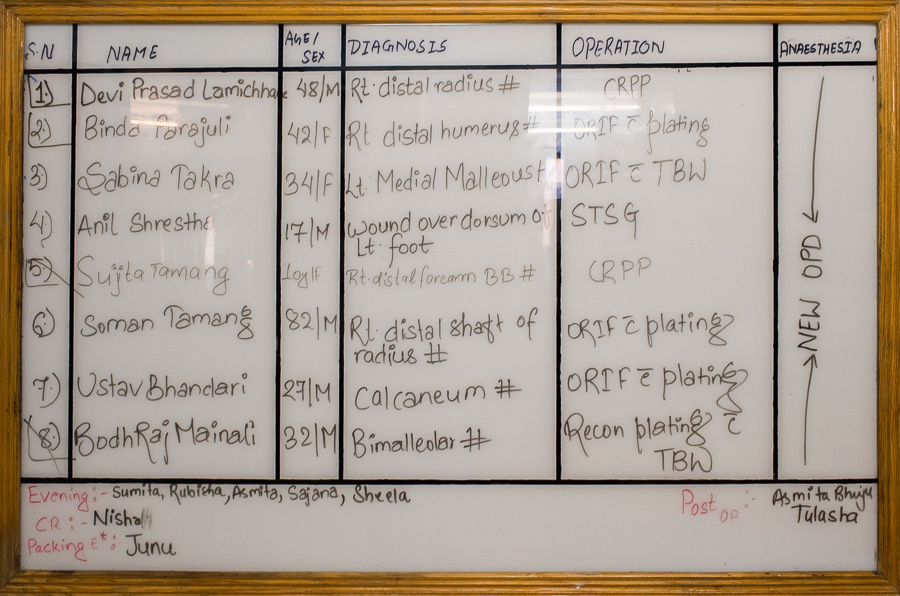 S.N NAME AGE/SEX DIAGNOSIS OPERATION ANAESTHESIA
1.) Devi Prasad Lamichhane 48/M Rt. distal radius # CRPP
2.) Binda Parajuli 42/F Rt. distal humerus # ORIF c̄ plating
3.) Sabina Takra 34/F Lt. Medial Malleous # ORIF c̄ TBW
4.) Anil Shrestha 17/M wound over dorsum of STSG
Lt. foot
5.) Sujita Tamang Rt. distal forearm BB # CRPP
6.) Soman Tamang 82/M Rt. distal shaft of ORIF c̄ plating
radius #
7.) Ustav Bhandari 27/M Calcaneum # ORIF c̄ plating
8.) BodhRaj Mainali 32/M Bimalleolar # Recon plating c̄
TBW
NEW OPD
Evening:- Sumita, Rubisha, Asmita, Sajana, Sheela
CR:- Nisha
Packing E*: Junu
Post OP:- Asmita Bhuju
Tulasha